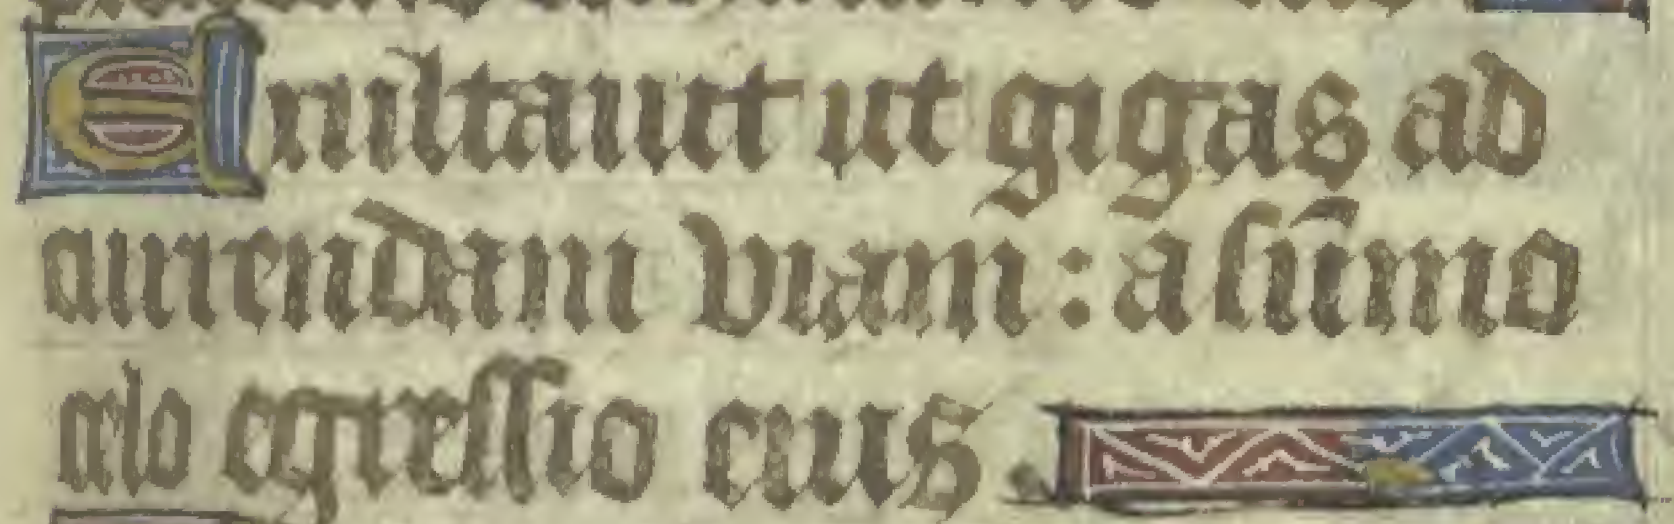 Exultauit ut gigas ad
currendam viam : a sūmo
celo egressio eius